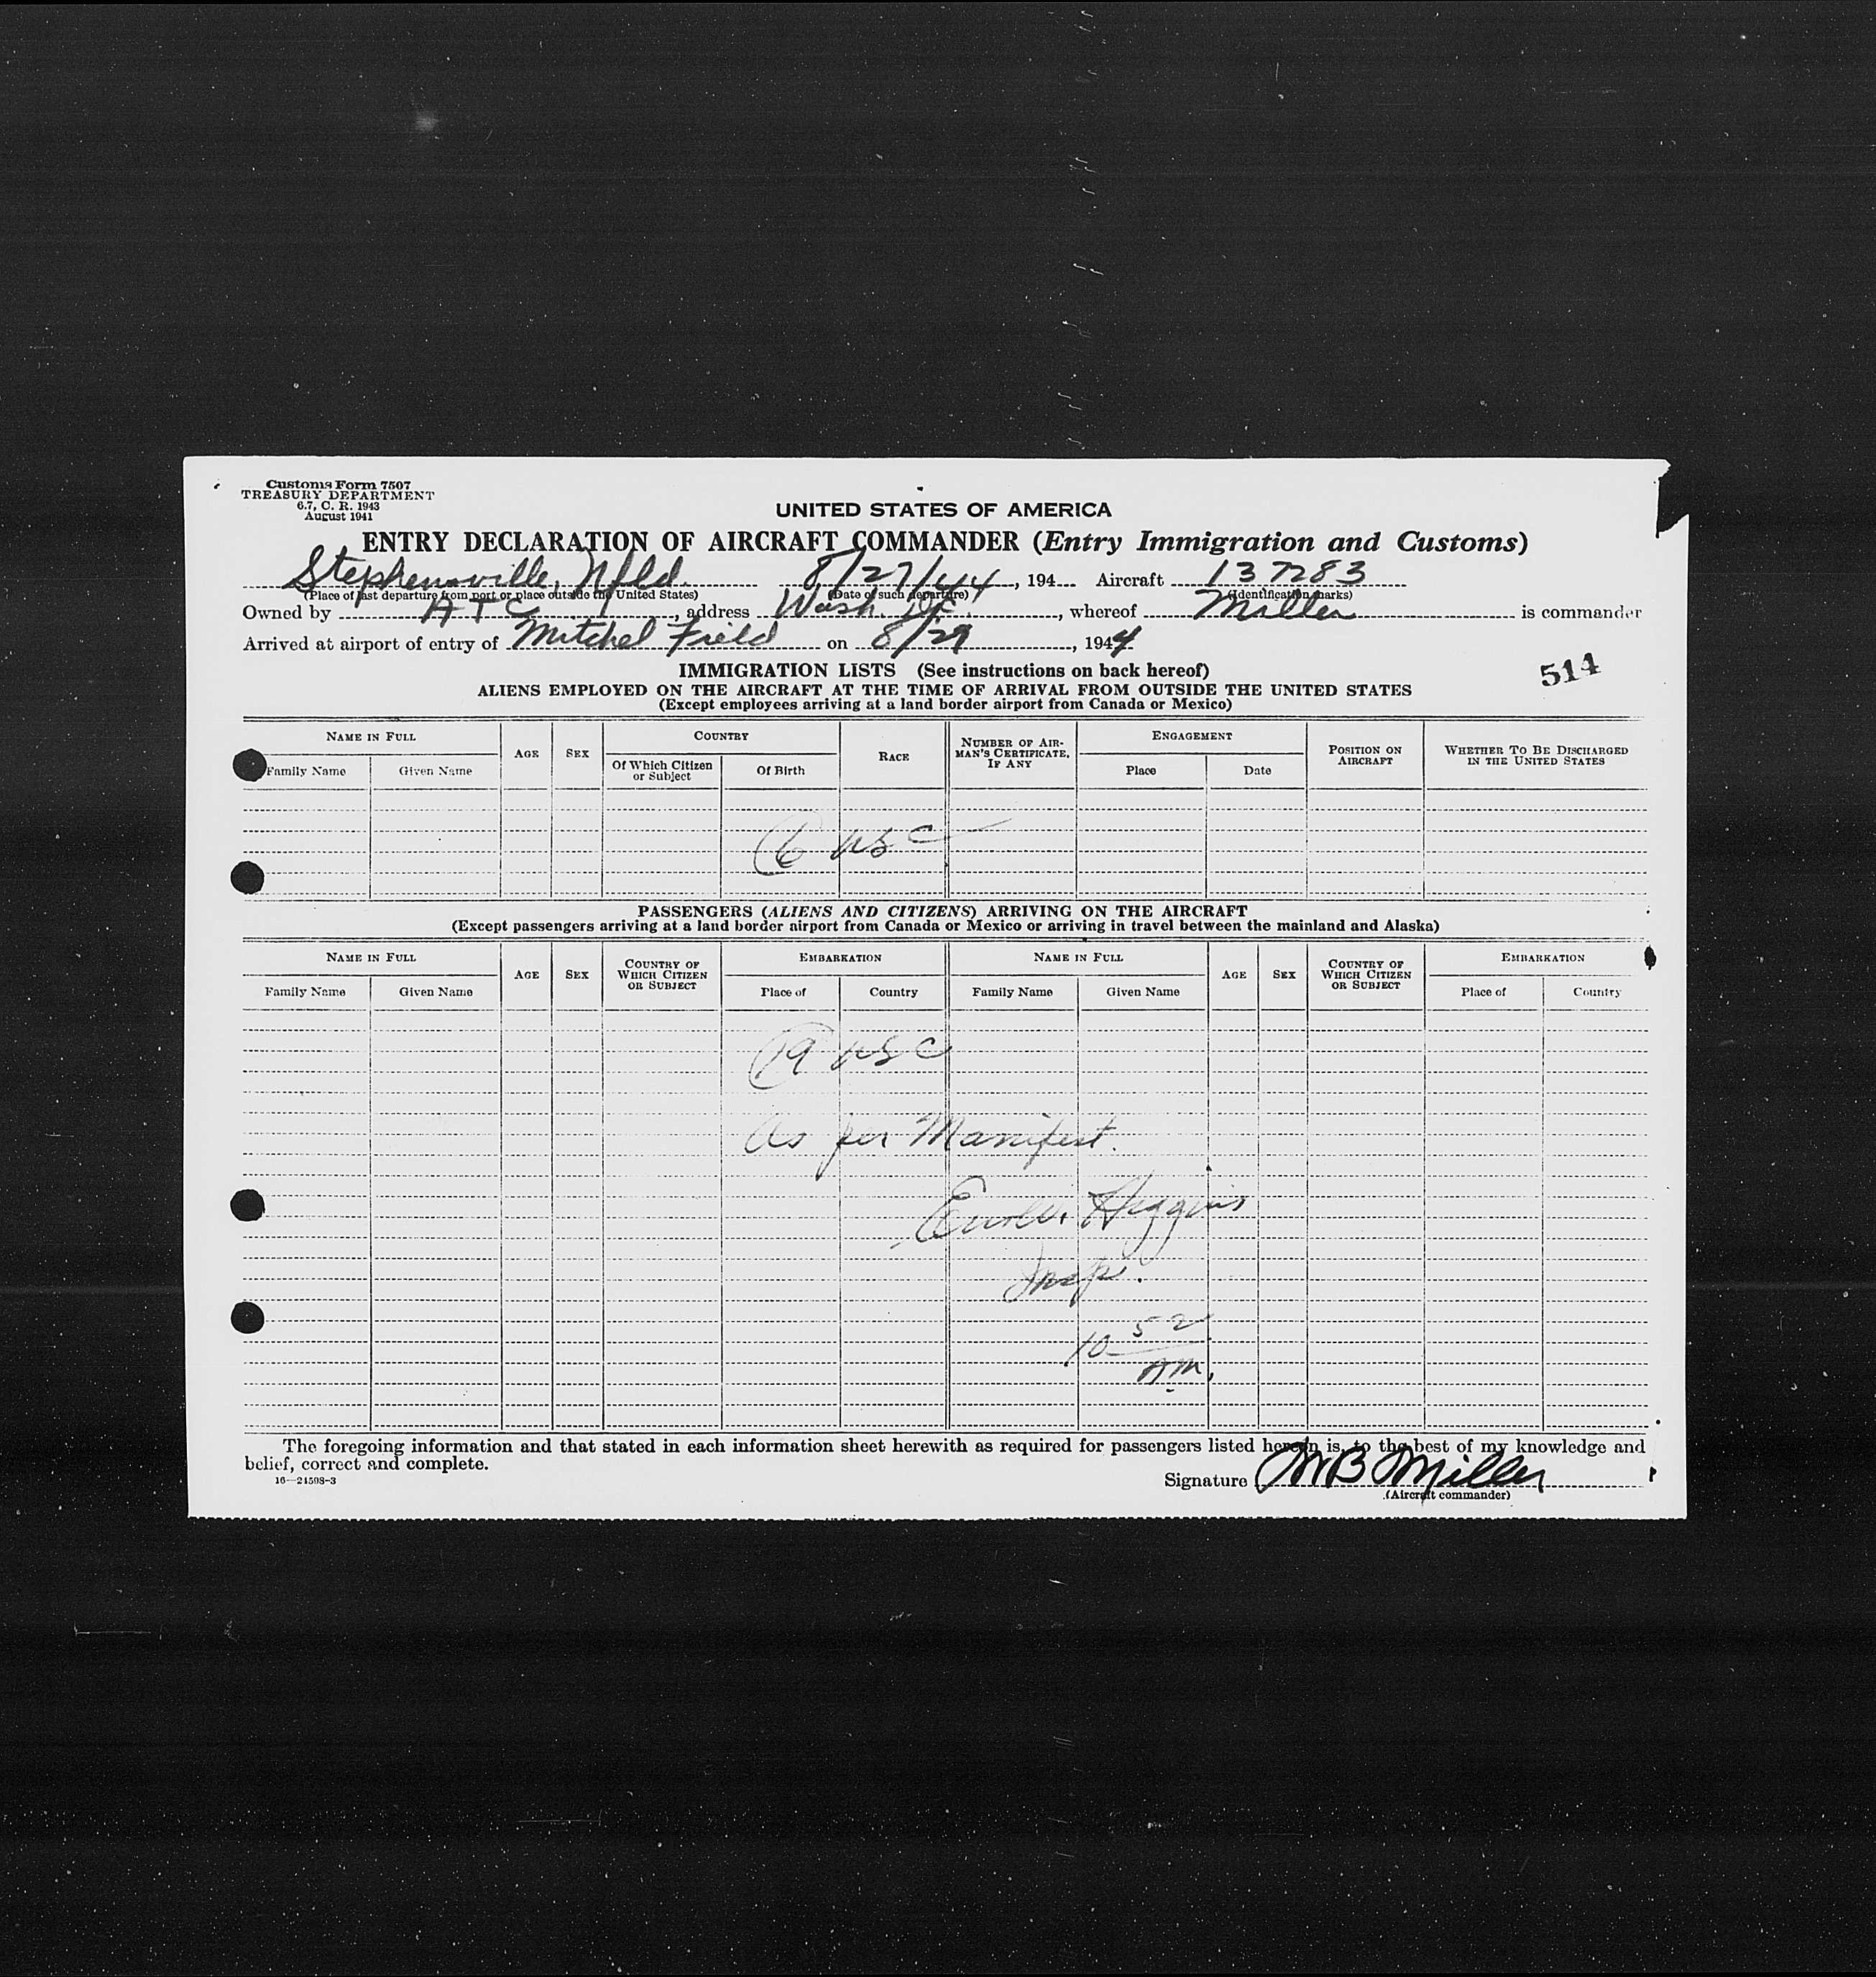 Customs Form 7507
TREASURY DEPARTMENT
6.7, C. R. 1943
August 1941
UNITED STATES OF AMERICA
ENTRY DECLARATION OF AIRCRAFT COMMANDER (Entry Immigration and Customs)
Stephensville, Nfld. 8/27/44, 194 Aircraft 137283
(Place of last departure from port or place outside the United States) (Date of such departure) (Identification marks)
Owned by ATC, address Wash. D.C., whereof Miller is commander
Arrived at airport of entry of Mitchel Field on 8/29, 1944
514
IMMIGRATION LISTS (See instructions on back hereof)
ALIENS EMPLOYED ON THE AIRCRAFT AT THE TIME OF ARRIVAL FROM OUTSIDE THE UNITED STATES
(Except employees arriving at a land border airport from Canada or Mexico)
NAME IN FULL AGE SEX COUNTRY RACE NUMBER OF AIRMAN'S CERTIFICATE, IF ANY ENGAGEMENT POSITION ON AIRCRAFT WHETHER TO BE DISCHARGED IN THE UNITED STATES
Family Name Given Name Of Which Citizen or Subject Of Birth Place Date
6 USC
PASSENGERS (ALIENS AND CITIZENS) ARRIVING ON THE AIRCRAFT
(Except passengers arriving at a land border airport from Canada or Mexico or arriving in travel between the mainland and Alaska)
NAME IN FULL AGE SEX COUNTRY OF WHICH CITIZEN OR SUBJECT EMBARKATION NAME IN FULL AGE SEX COUNTRY OF WHICH CITIZEN OR SUBJECT EMBARKATION
Family Name Given Name Place of Country Family Name Given Name Place of Country
19 USC
As per Manifest.
Higgins
Insp.
10 52
AM.
The foregoing information and that stated in each information sheet herewith as required for passengers listed herein is, to the best of my knowledge and
belief, correct and complete.
16—24598-3
Signature Miller
(Aircraft commander)